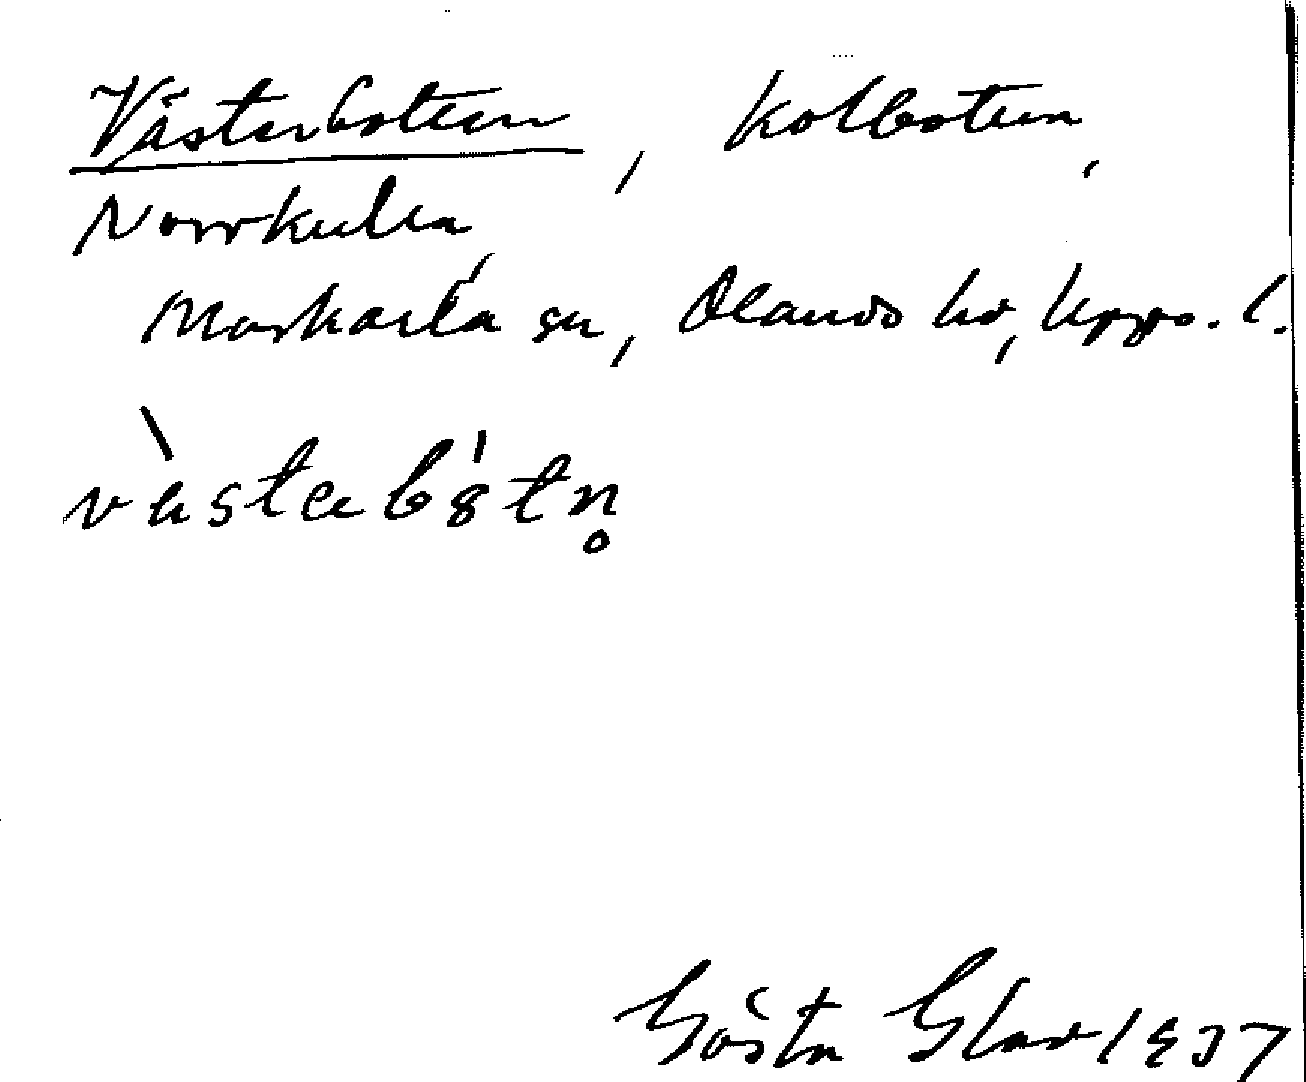 Västerbotten, Kolbotten,
Norrkulla,
Morkarla sn, Olands hd, Upps. l.
västerbòtn̥
Gösta Glad 1937